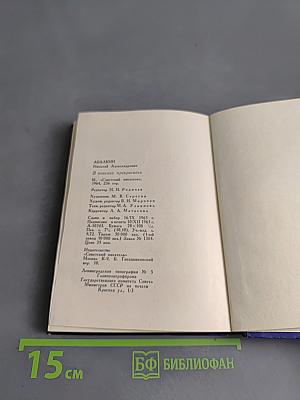 АБАЛКИН
Николай Александрович
В поисках прекрасного
М., «Советский писатель»,
1964, 236 стр.
Редактор Н. Н. Родичев
Художник М. В. Серегин
Худож. редактор В. И. Морозов
Техн. редактор М. А. Ульянова
Корректор Л. А. Матасова
Сдано в набор 16/IX 1963 г.
Подписано к печати 10/XII 1963 г.
Тираж 30 000 экз. (1-ый
завод 10 000 экз.) Заказ № 1304.
Цена 25 коп.
Издательство
«Советский писатель»
Москва К-9, Б. Гнездниковский
пер. 10.
Ленинградская типография № 5
Главполиграфпрома
Государственного комитета Совета
Министров СССР по печати
Красная ул., 1/3
15 см
БФ БИБЛИОФАН